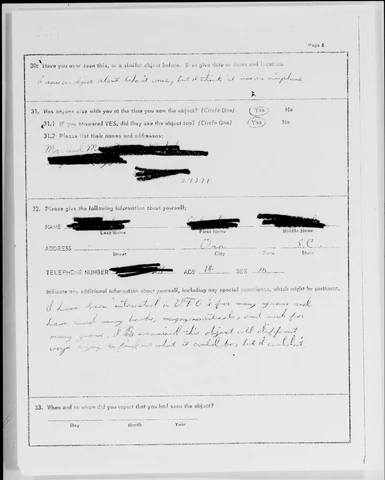 Page 6
30. Have you ever seen this, or a similar object before. If so give date or dates and location.
I saw an object about like it once, but I think it was an airplane
31. Was anyone else with you at the time you saw the object? (Circle One) Yes No
31.1 If you answered YES, did they see the object too? (Circle One) Yes No
31.2 Please list their names and addresses:
Mr. and M
29321
32. Please give the following information about yourself:
NAME
Last Name First Name Middle Name
ADDRESS S.C.
Street City Zone State
TELEPHONE NUMBER AGE 14 SEX
Indicate any additional information about yourself, including any special experience, which might be pertinent.
I have been interested in UFO's for many years and
have read many books, magazine articles, and such for
many years. I this object all different
ways trying to find out what it could be, but I couldn't.
33. When and to whom did you report that you had seen the object?
Day Month Year